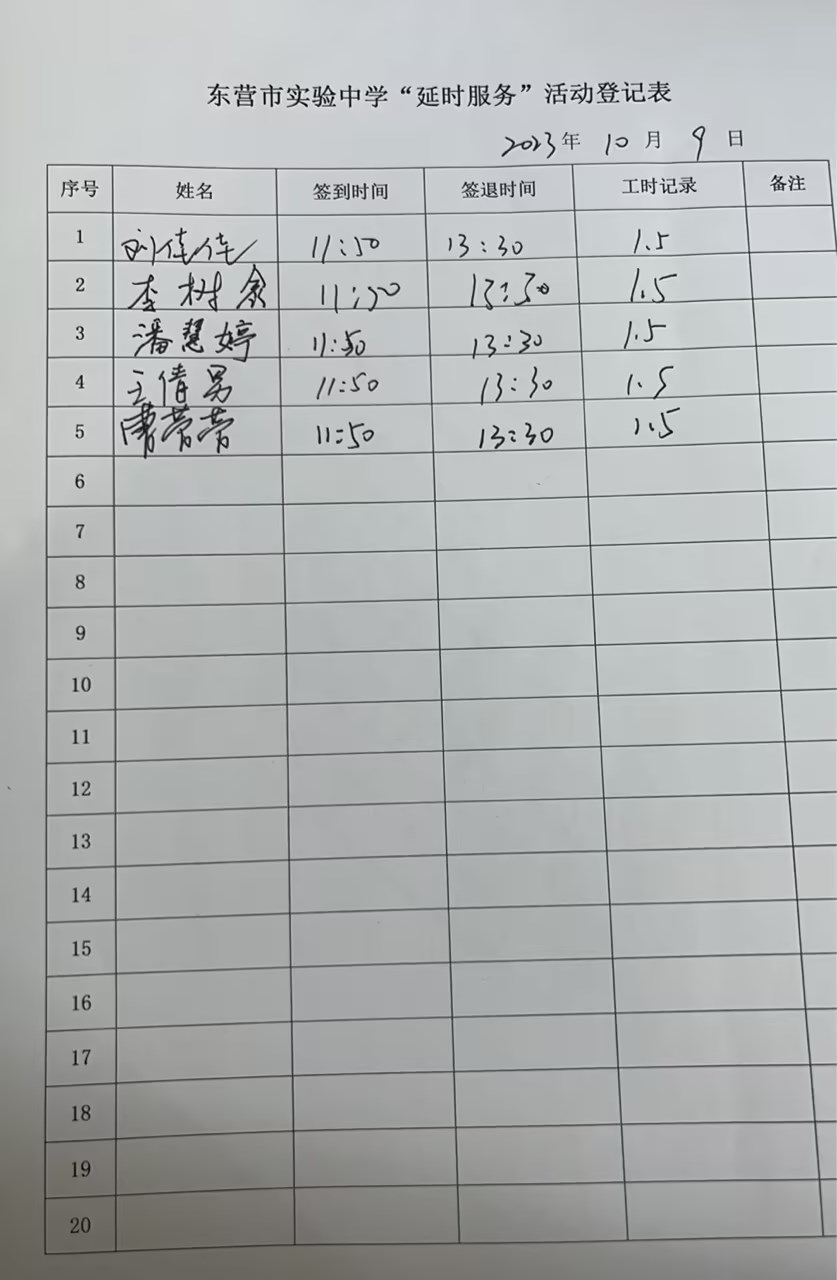 东营市实验中学“延时服务”活动登记表
2023年 10月 9日
序号 姓名 签到时间 签退时间 工时记录 备注
1 刘佳佳 11:50 13:30 1.5
2 李树 11:50 13:30 1.5
3 潘慧婷 11:50 13:30 1.5
4 王倩男 11:50 13:30 1.5
5 曹营营 11:50 13:30 1.5
6
7
8
9
10
11
12
13
14
15
16
17
18
19
20